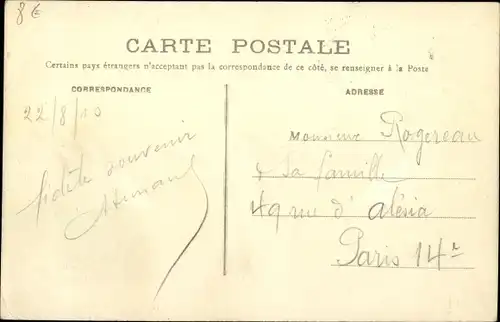 8 €
CARTE POSTALE
Certains pays étrangers n'acceptant pas la correspondance de ce côté, se renseigner à la Poste
CORRESPONDANCE
22/8/10
fidèle souvenir
ADRESSE
Monsieur Rogereau
& sa famille
49 rue d'Alésia
Paris 14e